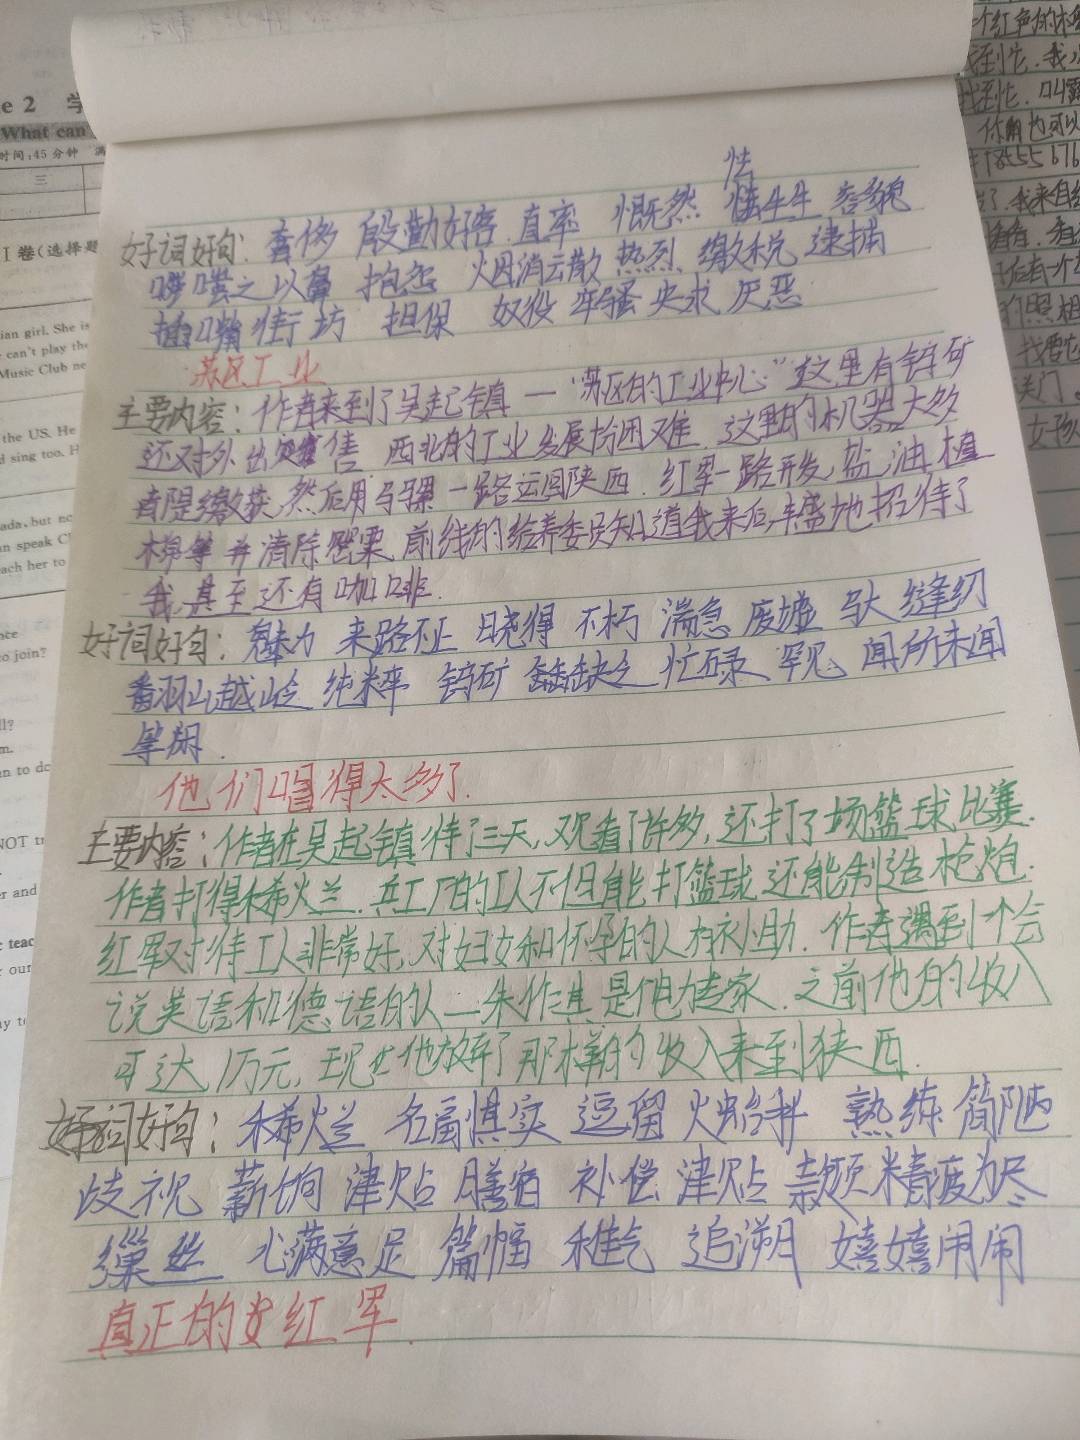 e 2 学
What can
时间:45分钟 满
三
I 卷(选择题
ian girl. She is
can't play the
Music Club ne
the US. He
d sing too. H
ada, but no
an speak C
each her to
to join?
an to do
NOT
er and
teac
our
怯
好词好句: 奢侈 殷勤好客 直率 慨然 怯生生
嗤之以鼻 抱怨 烟消云散 热烈 缴税 逮捕
插嘴 街坊 担保 奴役 牢骚 央求 厌恶
苏区工业
主要内容: 作者来到了吴起镇 — “苏区的工业中心” 这里有锌矿
还对外出售 西北的工业发展份困难 这里的机器大多
者是缴获, 然后用马骡一路运回陕西. 红军一路开发, 盐, 油, 植
棉等 并清除罂粟 前线的给养委员知道我来后, 丰盛地招待了
我, 甚至还有咖啡.
好词好句: 魅力 来路不正 晓得 不朽 湍急 废墟 驮 缝纫
翻山越岭 纯粹 锌矿 缺乏 忙碌 罕见 闻所未闻
等闲.
他们唱得太多了.
主要内容: 作者在吴起镇待了三天, 观看了许多, 还打了场篮球比赛.
作者打得稀火兰. 兵工厂的工人不但能打篮球 还能制造枪炮.
红军对待工人非常好, 对妇女和怀孕的人有补助. 作者遇到个会
说英语和德语的人—朱作其 是电力专家. 之前他的收入
可达1万元, 现在他放弃了那样的收入来到狭西.
好词好句: 稀烂 名副其实 逗留 火蛤蚪 熟练 简陋
歧视 薪饷 津贴 膳宿 补偿 津贴 款项 精疲力尽
缫丝 心满意足 篇幅 稚气 追溯 嬉嬉闹闹
真正的女红军.